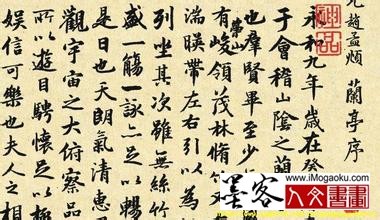 元趙孟頫 蘭亭序
永和九年歲在癸
于會稽山陰之蘭
也羣賢畢至少
有崇山峻領茂林脩
湍暎帶左右引以為
列坐其次雖無絲竹
盛一觴一詠亦足以暢
是日也天朗氣清惠
觀宇宙之大俯察品
所以遊目騁懷足以極
娛信可樂也夫人之相
墨客
www.iMogaoku.com
人文書畫